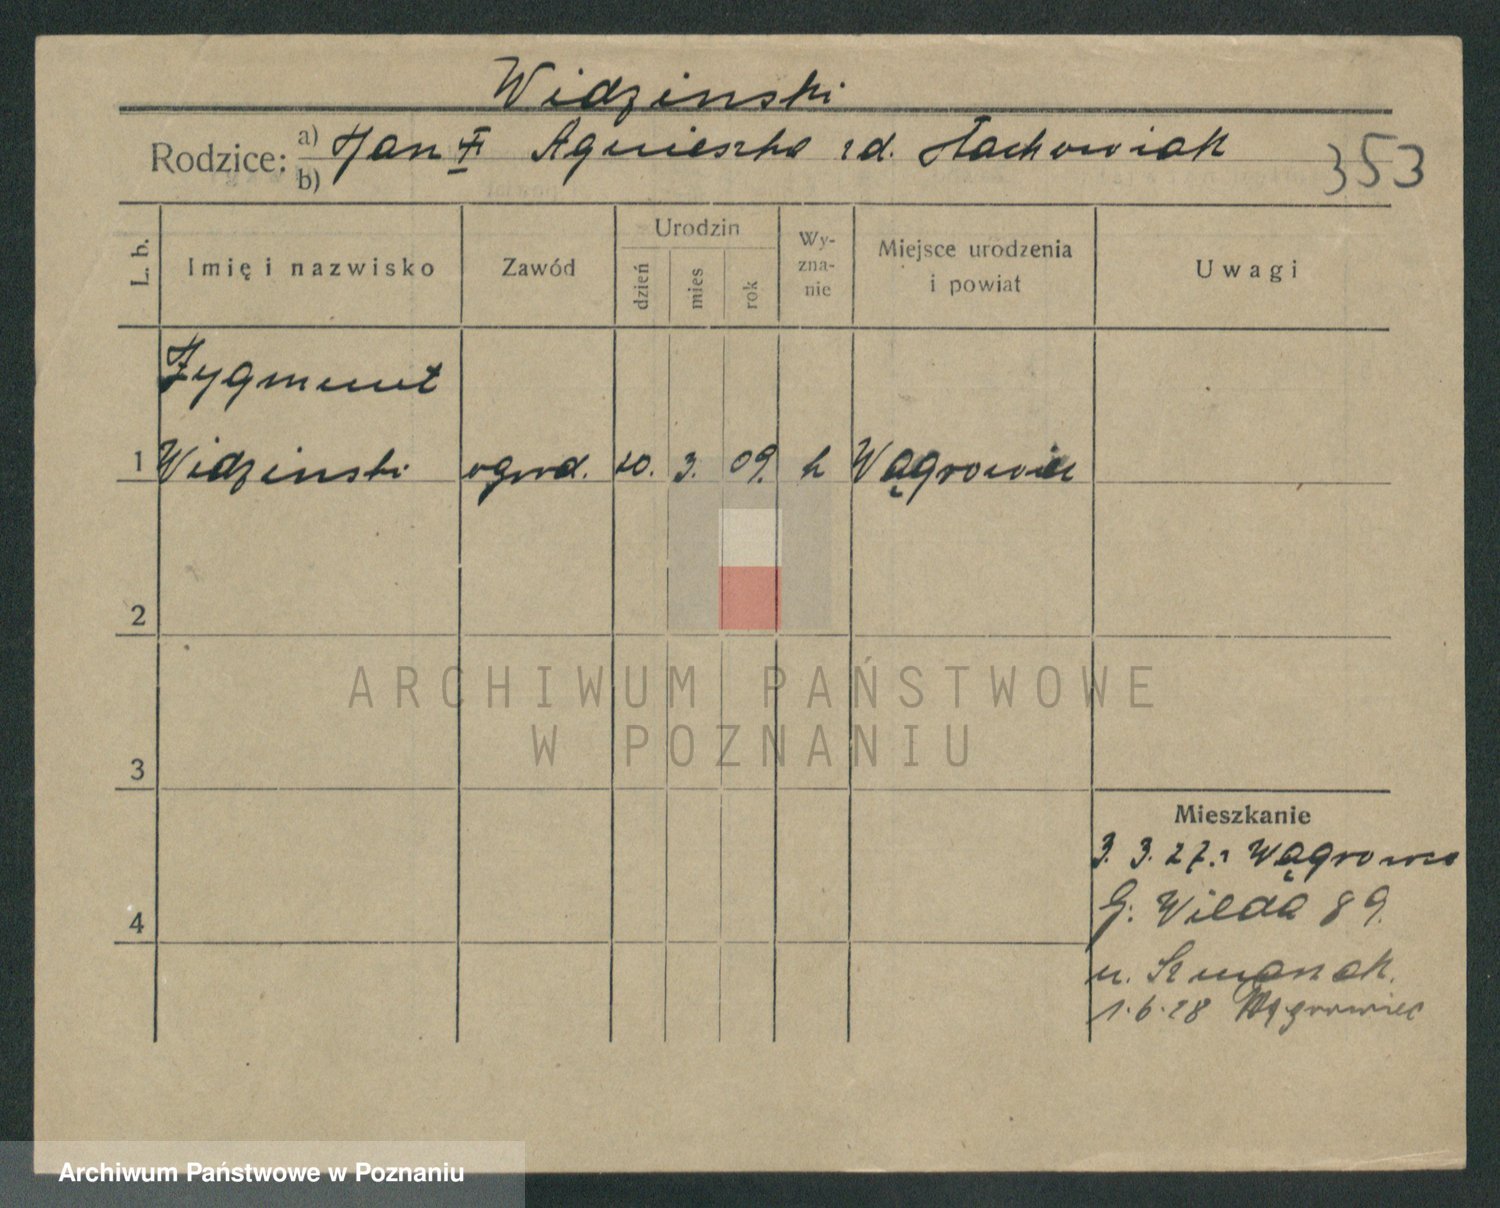 Widzinski
Rodzice: a) Jan Agnieszka zd. Stachowiak 353
b)
L. b. Imię i nazwisko Zawód Urodzin dzień mies rok Wyzna-nie Miejsce urodzenia i powiat Uwagi
Zygmunt
1 Widzinski ogrod. 20. 3. 09. k Wągrowiec
2
3
4
ARCHIWUM PAŃSTWOWE
W POZNANIU
Mieszkanie
3. 3. 27. z Wągrowca
G. Wilda 89.
u.
1.6.28 Wągrowiec
Archiwum Państwowe w Poznaniu